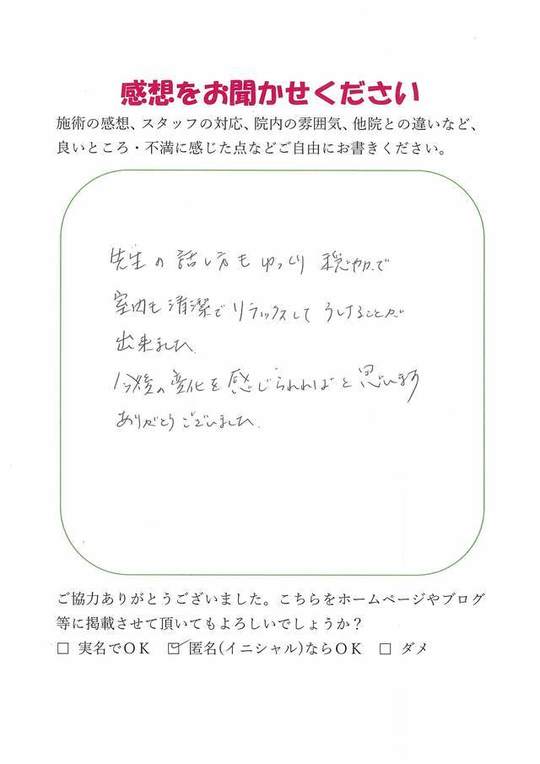 感想をお聞かせください
施術の感想、スタッフの対応、院内の雰囲気、他院との違いなど、
良いところ・不満に感じた点などご自由にお書きください。
先生の話し方もゆっくり 穏やかで
室内も清潔でリラックスして うけることが
出来ました。
今後の変化を感じられればと思います
ありがとうございました。
ご協力ありがとうございました。こちらをホームページやブログ
等に掲載させて頂いてもよろしいでしょうか？
□ 実名でOK ☑ 匿名(イニシャル)ならOK □ ダメ